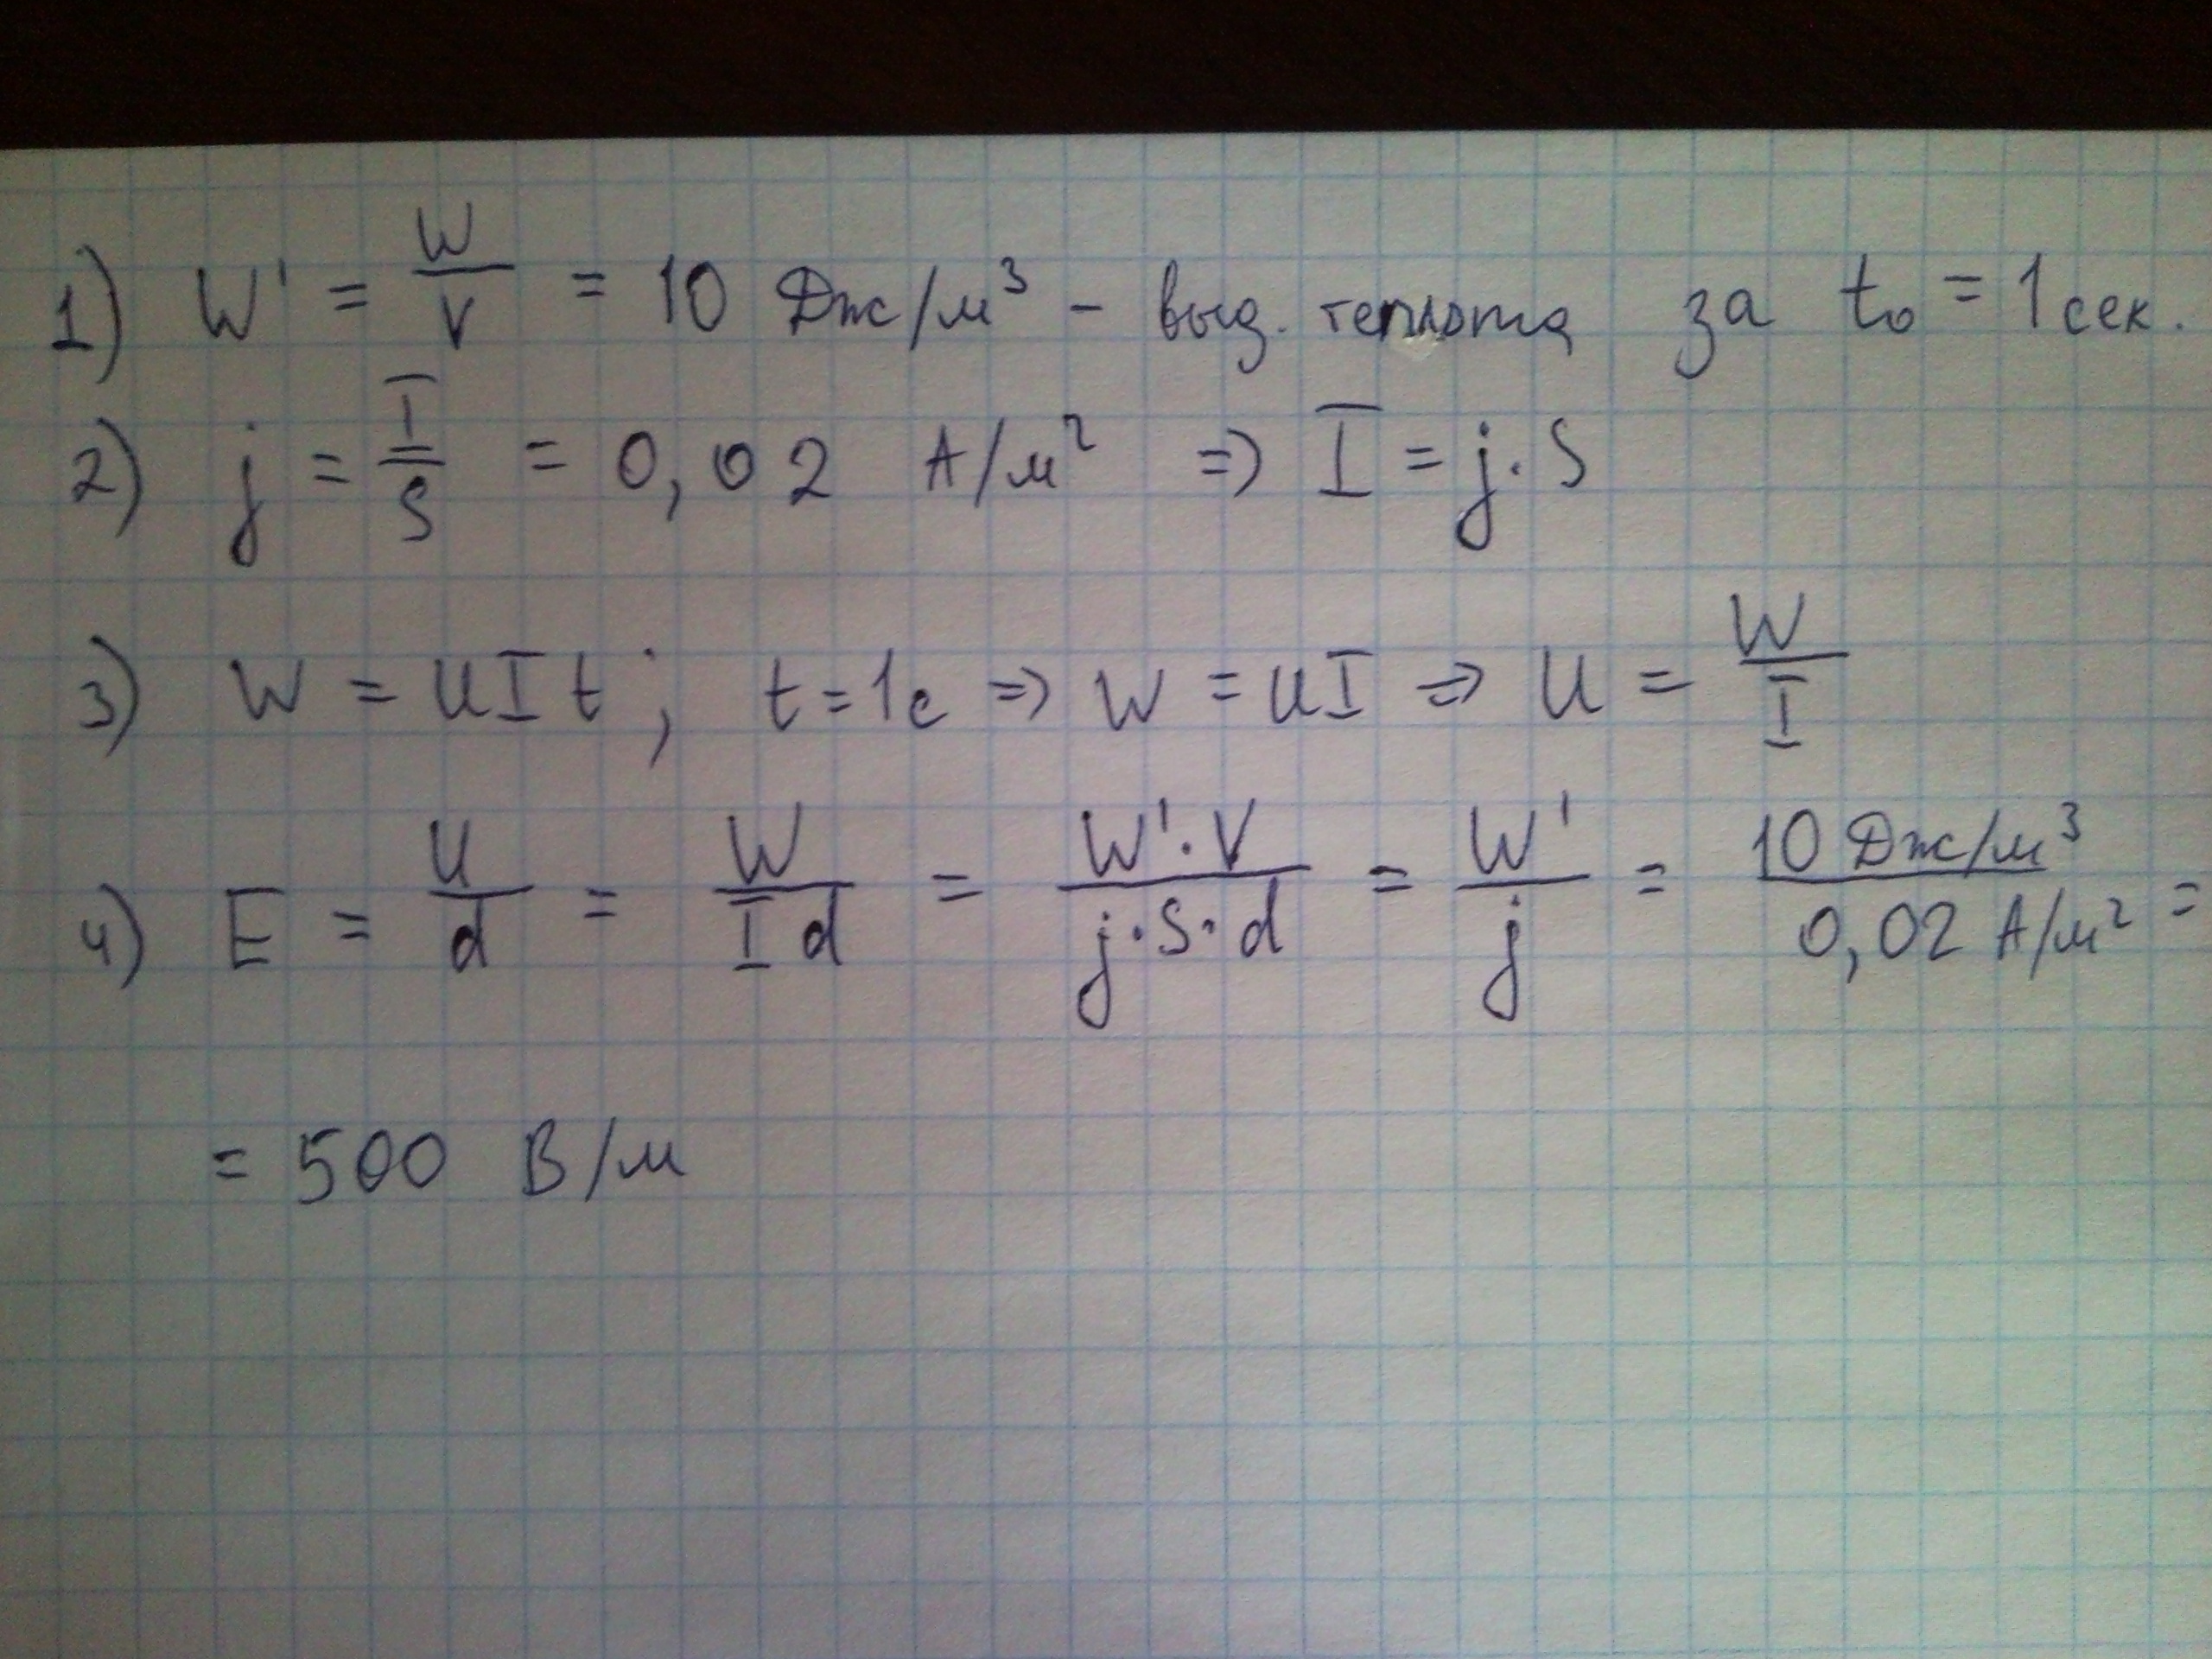 1) W' = W/V = 10 Дж/м³ - выд. теплота за t₀ = 1 сек.
2) j = I/S = 0,02 А/м² => I = j·S
3) W = UIt; t=1c => W = UI => U = W/I
4) E = U/d = W/Id = W'·V/j·S·d = W'/j = 10 Дж/м³/0,02 А/м² =
= 500 В/м